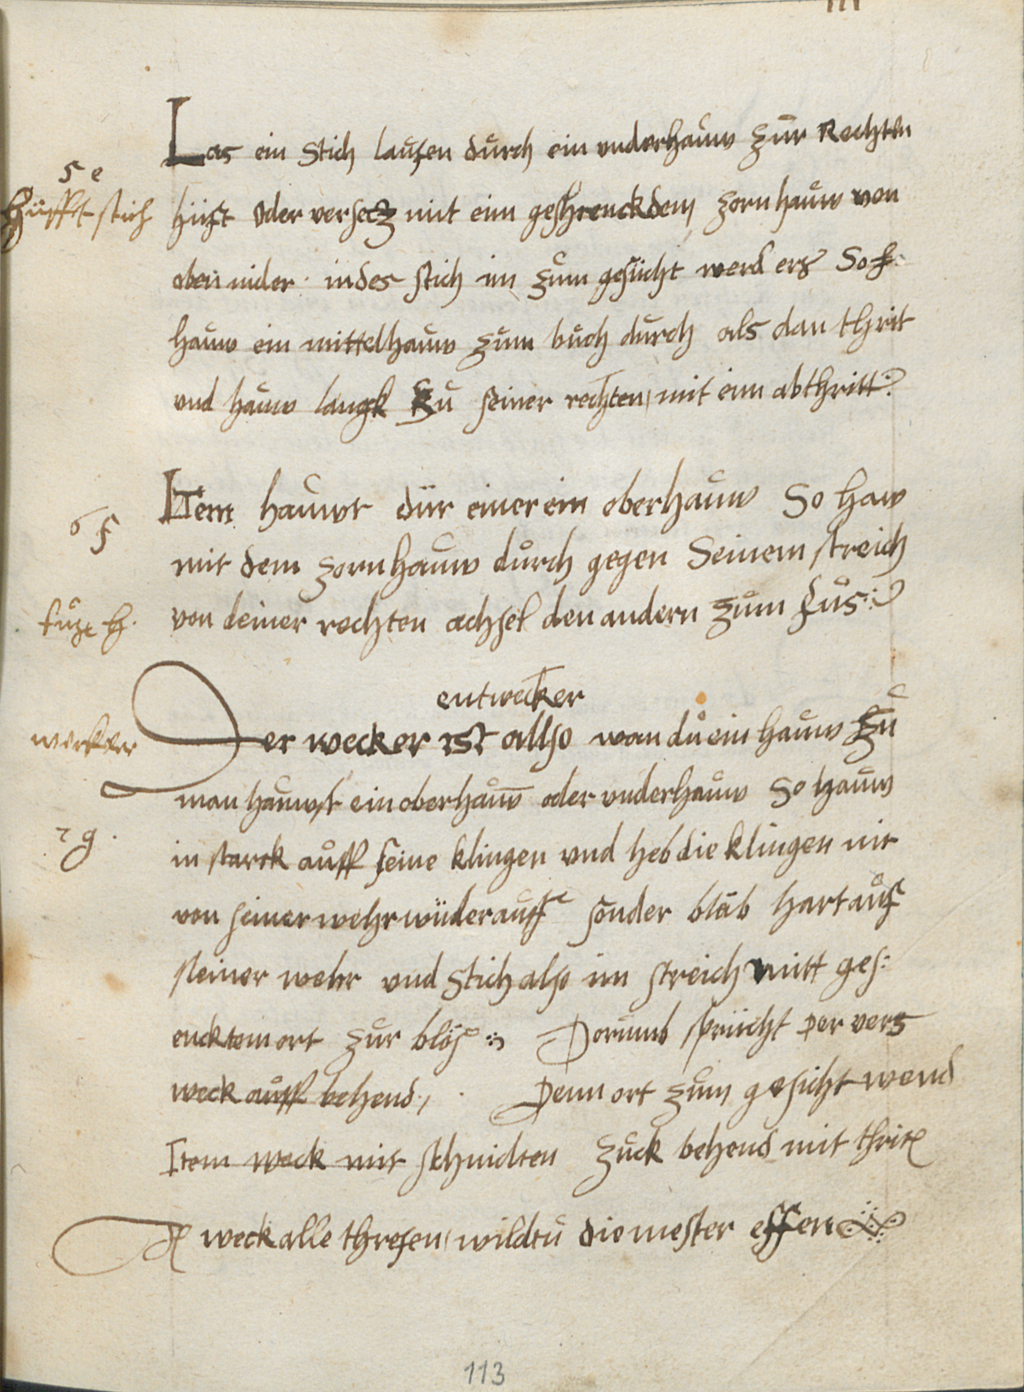 5 e
hüfft stich
Las ein Stich laufen durch ein underhauw zur Rechten
hüft oder versetz mit eim geschrenckdem zornhauw von
oben nider indes stich im zum gesücht werd ers So
hauw ein mittelhauw zum buch durch als dan thrit
und hauw langk zu seiner rechten mit eim abthritt
6 f
ITem hauwt dür einer ein oberhauw So haw
mit dem zornhauw durch gegen Seinem streich
von deiner rechten achsel den andern zum fus
entwecker
wecker
Der wecker ist allso wan du ein hauw zu
man hauwst ein oberhauw oder underhauw So hauw
7 g.
in starck auff seine klingen und heb die klingen nit
von seiner wehr wüder auff sonder bläb hart auf
seiner wehr und Stich also im streich mitt ges:
encktem ort zur blös Dorumb sprücht Der vers
weck auff behend, Denn ort zum gesicht wend
Item weck mit schnidten zuck behend mit thrit
weck alle thresen wildtu die mester effen
113